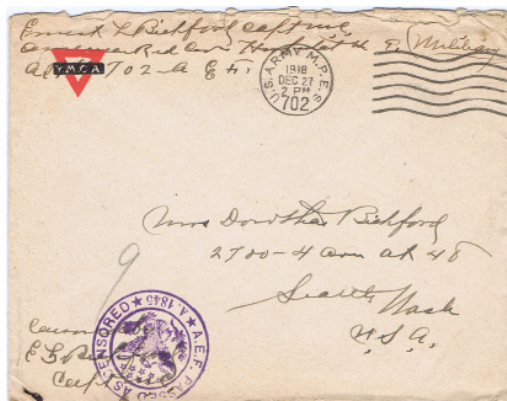 Ernest L Bickford Capt
American Red Cross Hospital
A P O 702 - A E F.
Military
YMCA
U.S. ARMY M.P.E.S.
1918
DEC 27
2 PM
702
Mrs Dorothea Bickford
2700 - 4 Ave Apt 48
Seattle Wash
U.S.A.
9
A.E.F. PASSED AS CENSORED ★ A.1845 ★
E L Bickford
Capt